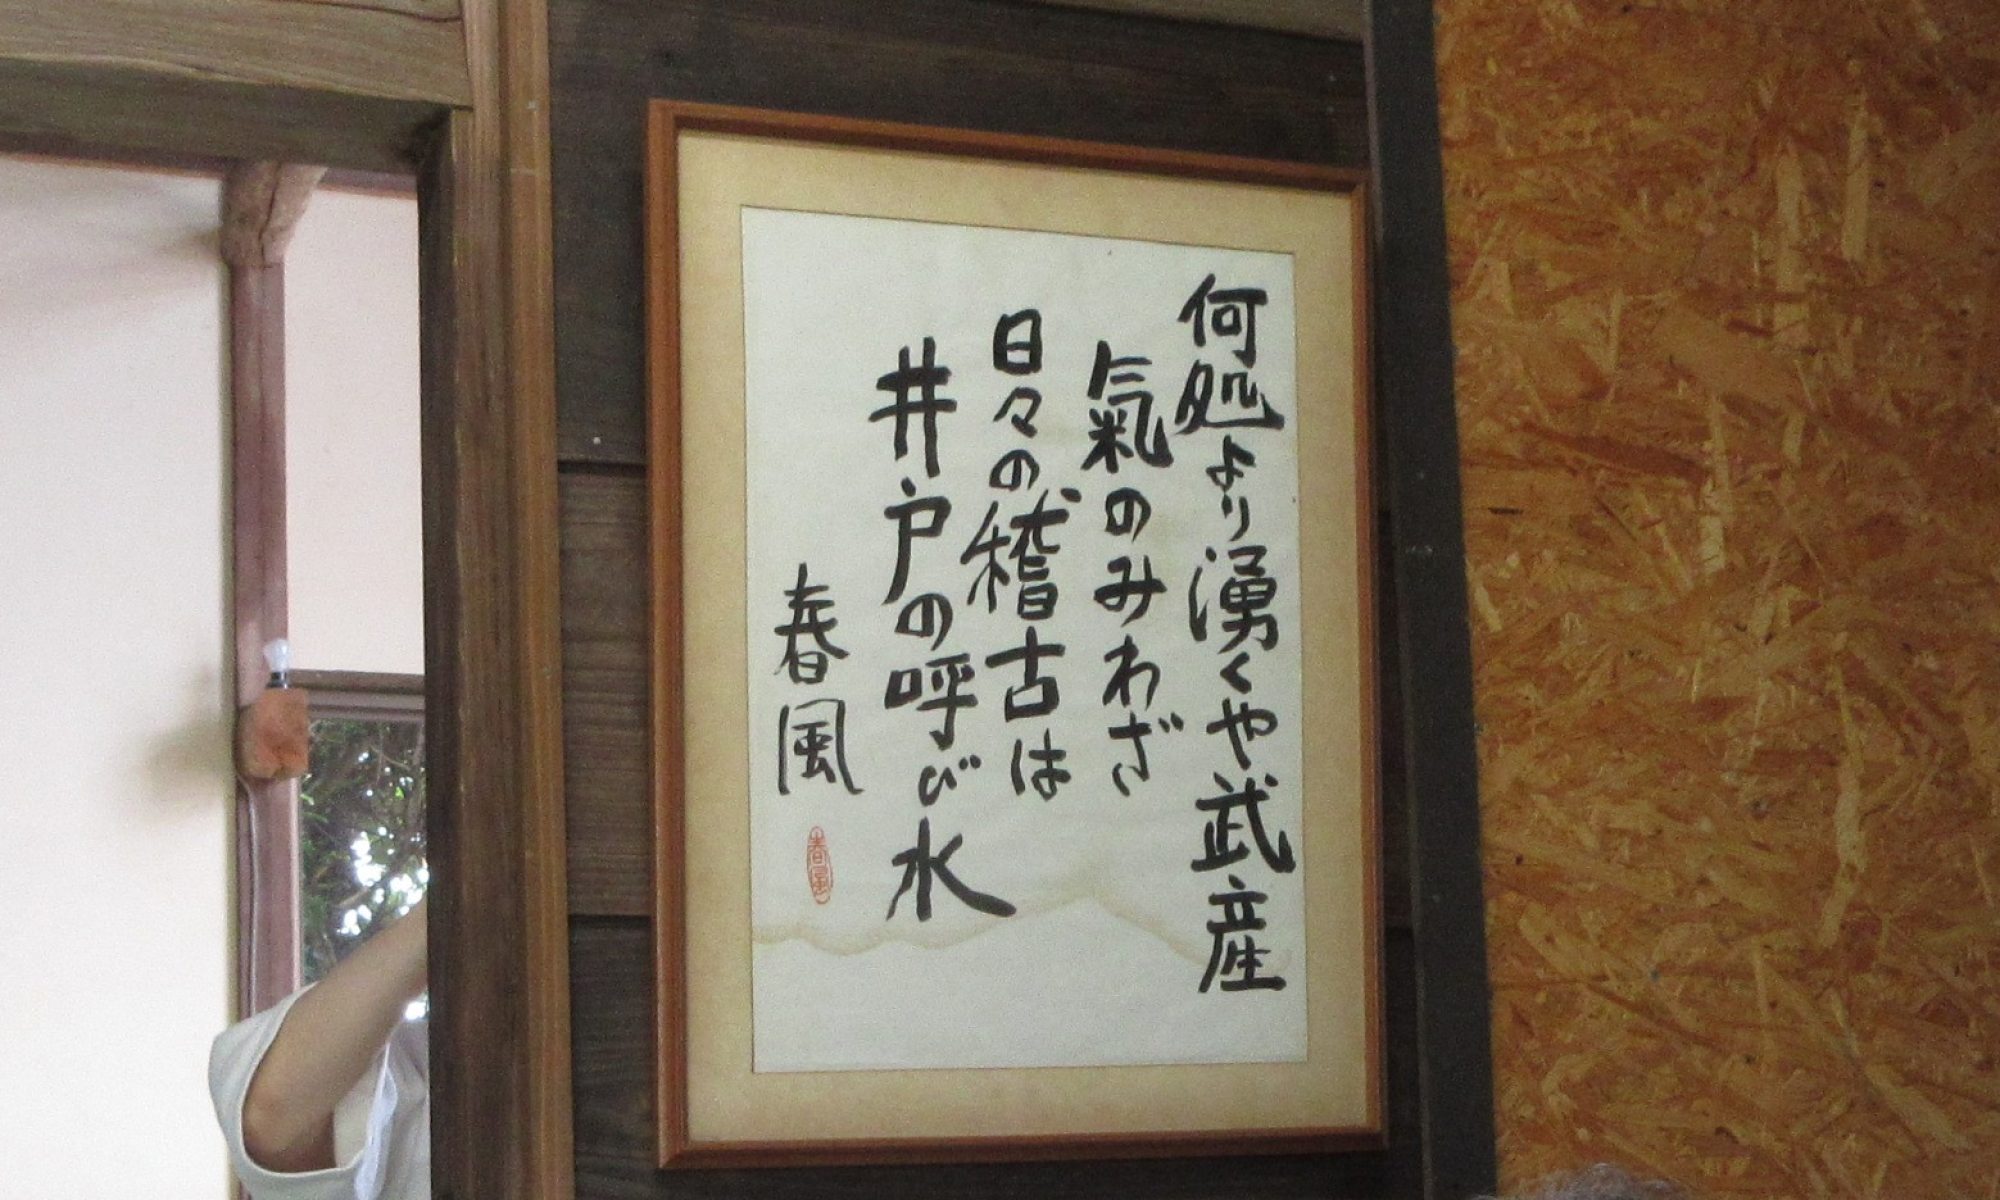 何処より湧くや武産
氣のみわざ
日々の稽古は
井戸の呼び水
春風
春風